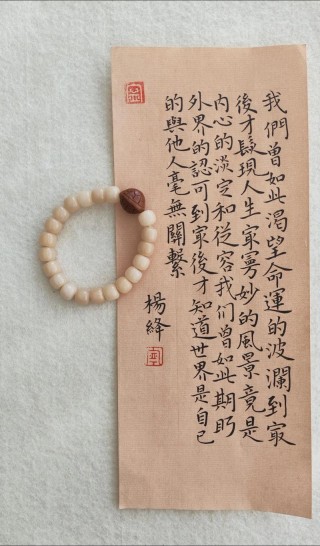 我們曾如此渴望命運的波瀾到㝡
後才髮現人生㝡曼妙的風景竟是
內心的淡定和從容我們曾如此期盼
外界的認可到㝡後才知道世界是自己
的與他人毫無關繫
楊絳